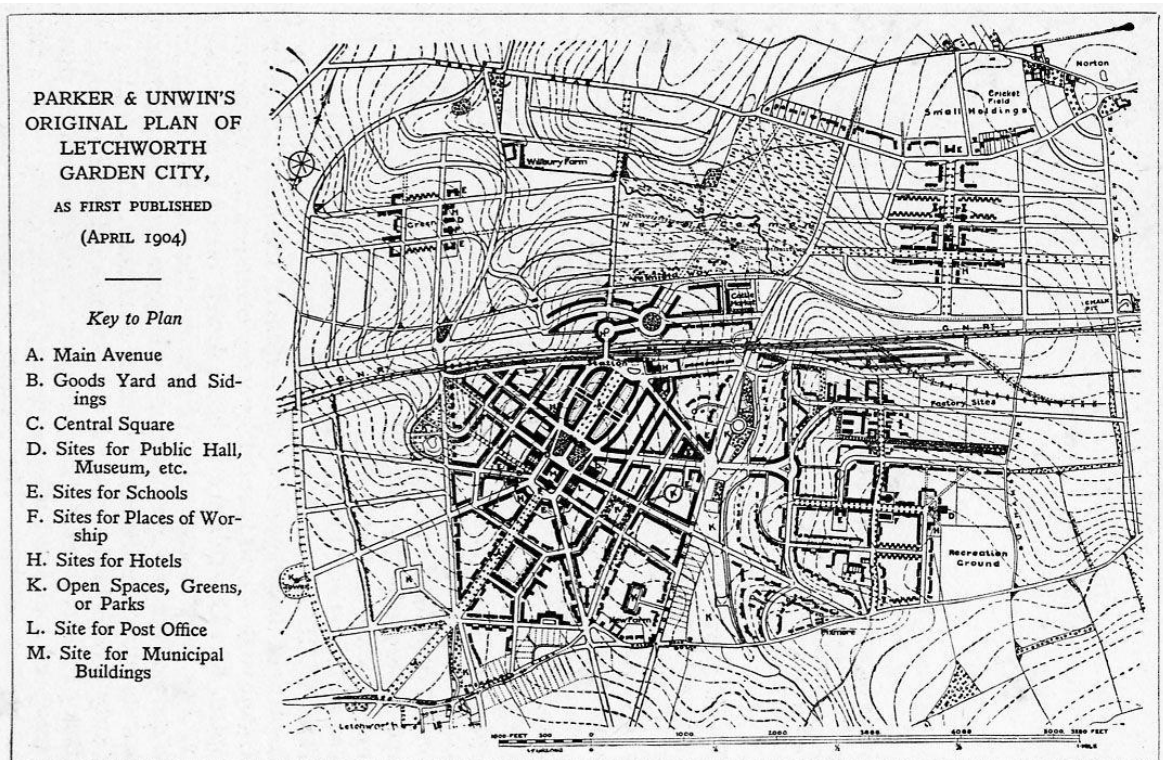 PARKER & UNWIN'S
ORIGINAL PLAN OF
LETCHWORTH
GARDEN CITY,
AS FIRST PUBLISHED
(APRIL 1904)
Key to Plan
A. Main Avenue
B. Goods Yard and Sid-
ings
C. Central Square
D. Sites for Public Hall,
Museum, etc.
E. Sites for Schools
F. Sites for Places of Wor-
ship
H. Sites for Hotels
K. Open Spaces, Greens,
or Parks
L. Site for Post Office
M. Site for Municipal
Buildings
Norton
Cricket
Field
Small Holdings
Wilbury Farm
Green
Norton Common
Cattle
Market
CHALK
PIT
G.N.R.
Station
G.N.R.
Factory Sites
Recreation
Ground
New Farm
Pixmore
Letchworth
1000 FEET 500 0 1000 2000 3000 4000 5000 5280 FEET
1 MILE